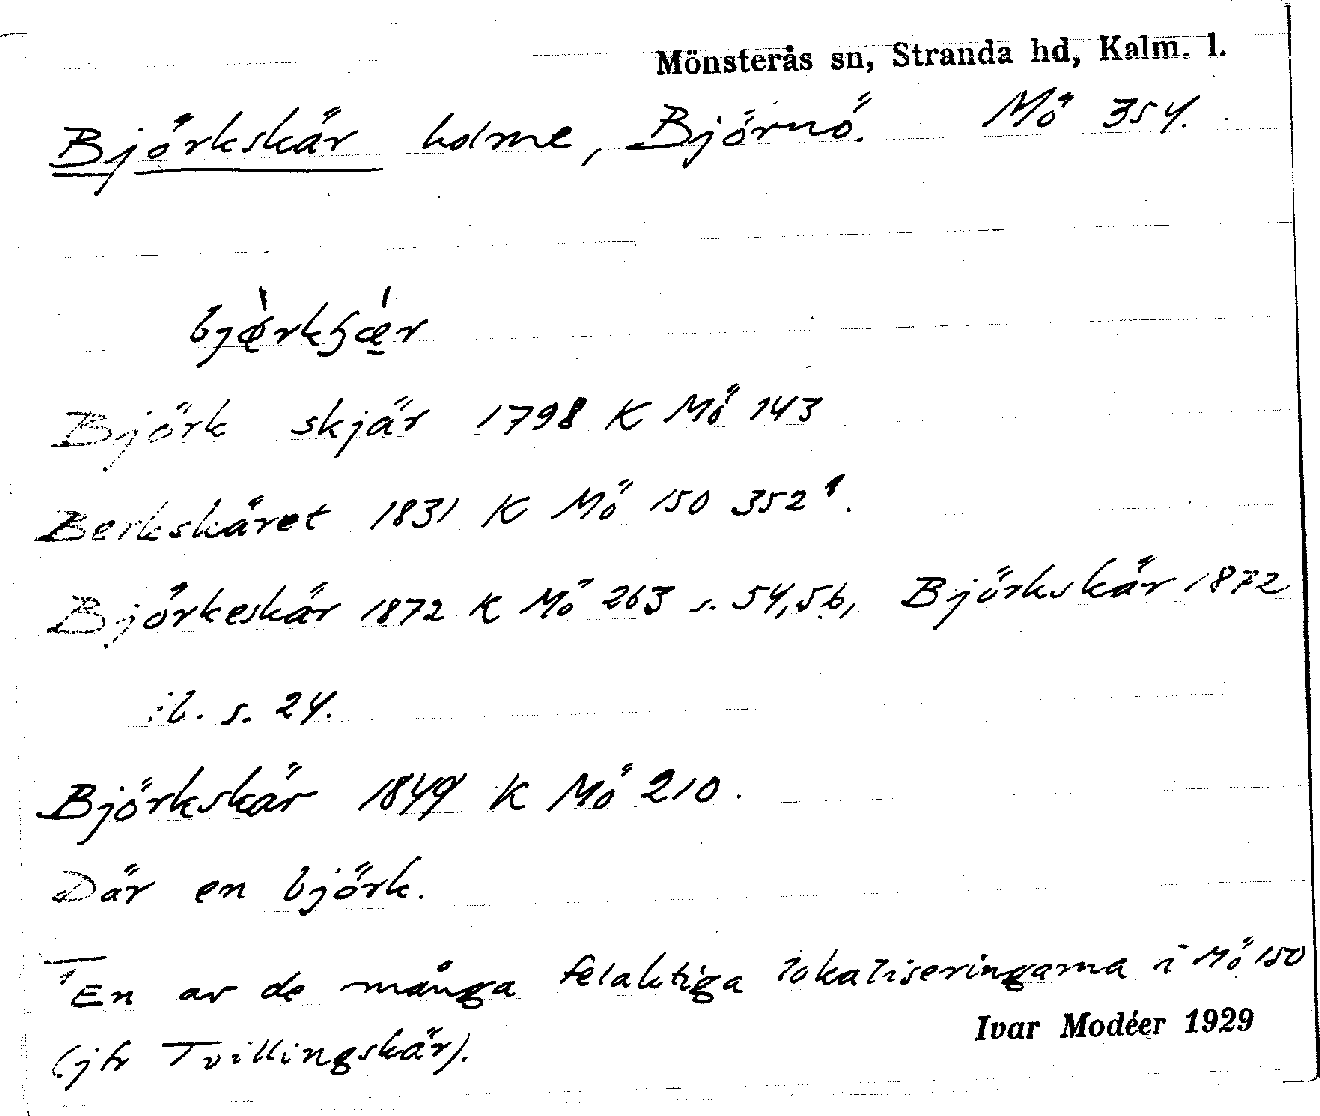 Mönsterås sn, Stranda hd, Kalm. l.
Björkskär holme, Björnö. Mö 354.
Björk skjär 1798 K Mö 143
Berkskäret 1831 K Mö 150 352¹.
Björkeskär 1872 K Mö 263 s. 54, 56, Björkskär 1872
ib. s. 24.
Björkskär 1849 K Mö 210.
Där en björk.
¹En av de många felaktiga lokaliseringarna i Mö 150
(jfr Tvillingskär).
Ivar Modéer 1929